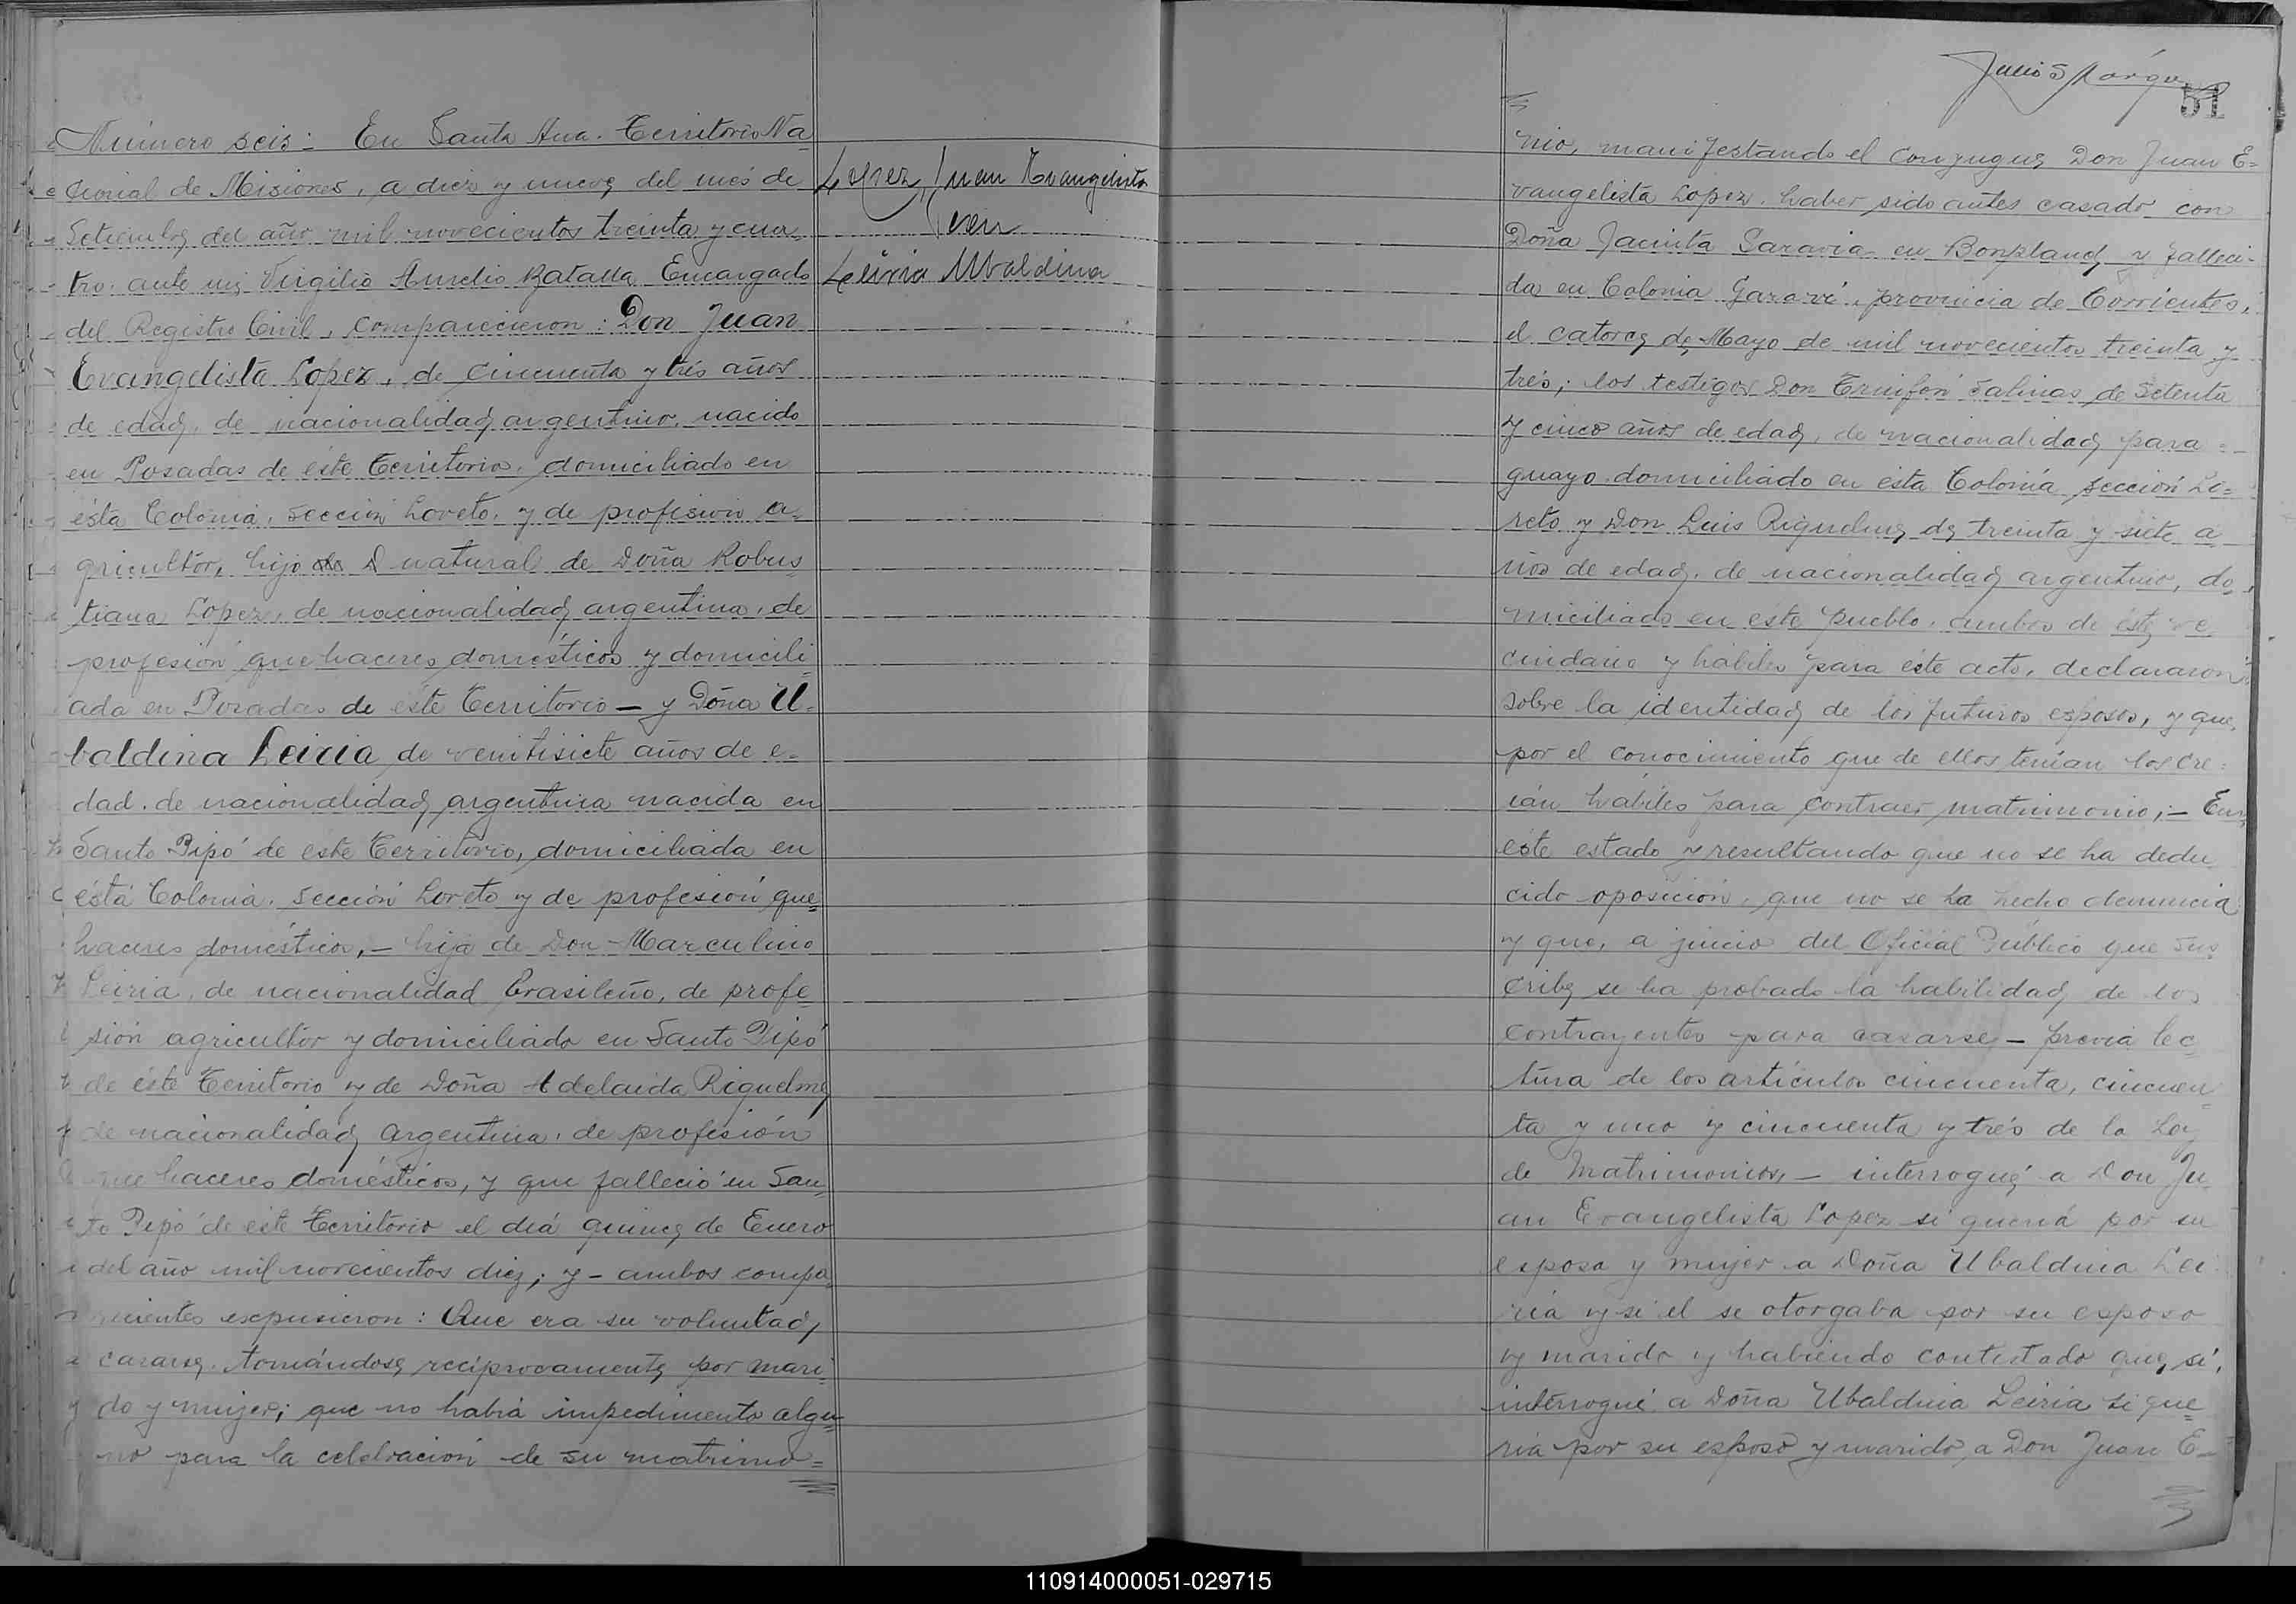 Número seis:- En Santa Ana. Territorio Na-
cional de Misiones, a diez y nueve del més de
Setiembre del año mil novecientos treinta y cua-
tro, ante mi, Virgilio Aurelio Encargado
del Registro Civil, comparecieron: Don Juan
Evangelista Lopez, de cincuenta y trés años
de edad, de nacionalidad argentino, nacido
en Posadas de éste Territorio, domiciliado en
ésta Colonia, Sección Loreto, y de profesión a-
gricultor, hijo natural de Doña Robus-
tiana Lopez, de nacionalidad argentina, de
profesión que haceres domésticos y domicili-
ada en Posadas de éste Territorio - y Doña U-
baldina Leiria de venitisiete años de e-
dad, de nacionalidad argentina nacida en
Santo Pipó de este Territorio, domiciliada en
ésta Colonia, Sección Loreto y de profesión que-
haceres domésticos, - hija de Don Marculino
Leiria, de nacionalidad Brasileño, de profe-
sión agricultor y domiciliado en Santo Pipó
de éste Territorio y de Doña Adelaida Riquelme,
de nacionalidad argentina, de profesión
que haceres domésticos, y que falleció en San-
to Pipó de éste Territorio el día quince de Enero
del año mil novecientos diez; y - ambos compa-
recientes expusieron: Que era su voluntad,
casarse, tomándose reciprocamente por mari-
do y mujer; que no había impedimento algu-
no para la celebración de su matrimo=
Lopez, Juan Evangelista
con
Leiria Ubaldina
51
nio, manifestando el conyugue, Don Juan E-
vangelista Lopez, haber sido antes casado con
Doña Jacinta Saravia en Bonpland, y falleci-
da en Colonia Garaví, provincia de Corrientes,
el catorce de Mayo de mil novecientos treinta y
trés; los testigos Don Salinas de Setenta
y cinco años de edad, de nacionalidad para=
guayo domiciliado en ésta Colonia, sección Lo=
reto y Don Luis Riquelme, de treinta y siete a-
ños de edad, de nacionalidad argentino, do-
miciliado en éste pueblo, ambos de éste ve
cindario y hábiles para éste acto, declararon
sobre la identidad de los futuros esposos, y que,
por el conocimiento que de ellos tenían los cre=
ían habiles para contraer matrimonio;- En
éste estado y resultando que no se ha dedu
cido oposición, que no se ha hecho denuncia
y que, a juicio del Oficial Público que sus-
cribe, se ha probado la habilidad, de los
contrayentes para casarse - previa lec-
tura de los artículos cincuenta, cincuen-
ta y uno y cincuenta y trés de la Ley
de Matrimonios, - interrogué a Don Ju-
an Evangelista Lopez si quería por su
esposa y mujer a Doña Ubaldina Lei-
ria y si el se otorgaba por su esposo
y marido y habiendo contestado que, sí,
interrogué a Doña Ubaldina Leiria si que-
ria por su esposo y marido, a Don Juan E-
110914000051-029715